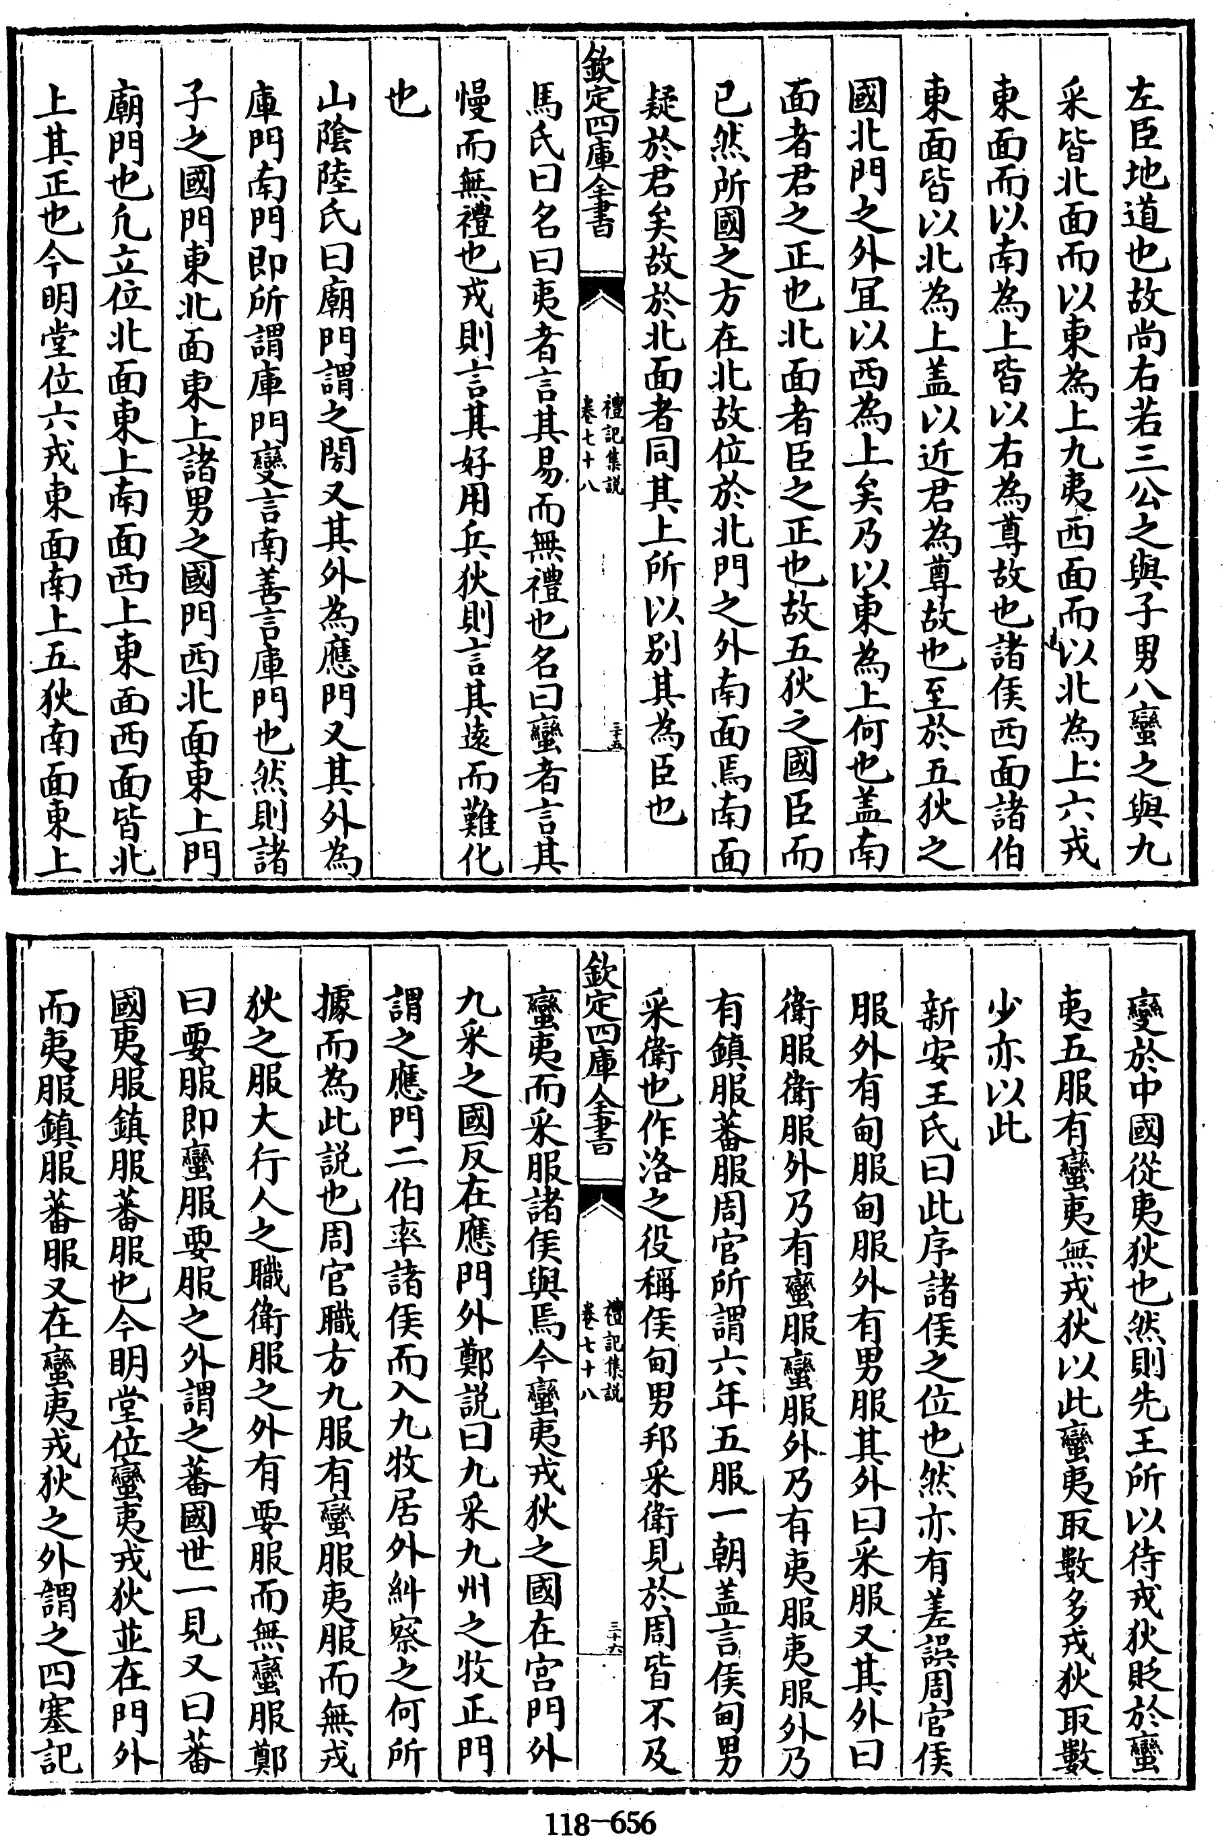 左臣地道也故尚右若三公之與子男八蠻之與九
采皆北面而以東為上九夷西面而以北為上六戎
東面而以南為上皆以右為尊故也諸侯西面諸伯
東面皆以北為上蓋以近君為尊故也至於五狄之
國北門之外宜以西為上矣乃以東為上何也蓋南
面者君之正也北面者臣之正也故五狄之國臣而
已然所國之方在北故位於北門之外南面焉南面
疑於君矣故於北面者同其上所以別其為臣也
欽定四庫全書
禮記集說
卷七十八
三十五
馬氏曰名曰夷者言其易而無禮也名曰蠻者言其
慢而無禮也戎則言其好用兵狄則言其遠而難化
也
山陰陸氏曰廟門謂之閍又其外為應門又其外為
庫門南門即所謂庫門變言南善言庫門也然則諸
子之國門東北面東上諸男之國門西北面東上門
廟門也凡立位北面東上南面西上東面西面皆北
上其正也今明堂位六戎東面南上五狄南面東上
變於中國從夷狄也然則先王所以待戎狄貶於蠻
夷五服有蠻夷無戎狄以此蠻夷取數多戎狄取數
少亦以此
新安王氏曰此序諸侯之位也然亦有差誤周官侯
服外有甸服甸服外有男服其外曰采服又其外曰
衛服衛服外乃有蠻服蠻服外乃有夷服夷服外乃
有鎮服蕃服周官所謂六年五服一朝蓋言侯甸男
采衛也作洛之役稱侯甸男邦采衛見於周皆不及
欽定四庫全書
禮記集說
卷七十八
三十六
蠻夷而采服諸侯與焉今蠻夷戎狄之國在宮門外
九采之國反在應門外鄭說曰九采九州之牧正門
謂之應門二伯率諸侯而入九牧居外糾察之何所
據而為此說也周官職方九服有蠻服夷服而無戎
狄之服大行人之職衛服之外有要服而無蠻服鄭
曰要服即蠻服要服之外謂之蕃國世一見又曰蕃
國夷服鎮服蕃服也今明堂位蠻夷戎狄並在門外
而夷服鎮服蕃服又在蠻夷戎狄之外謂之四塞記
118-656